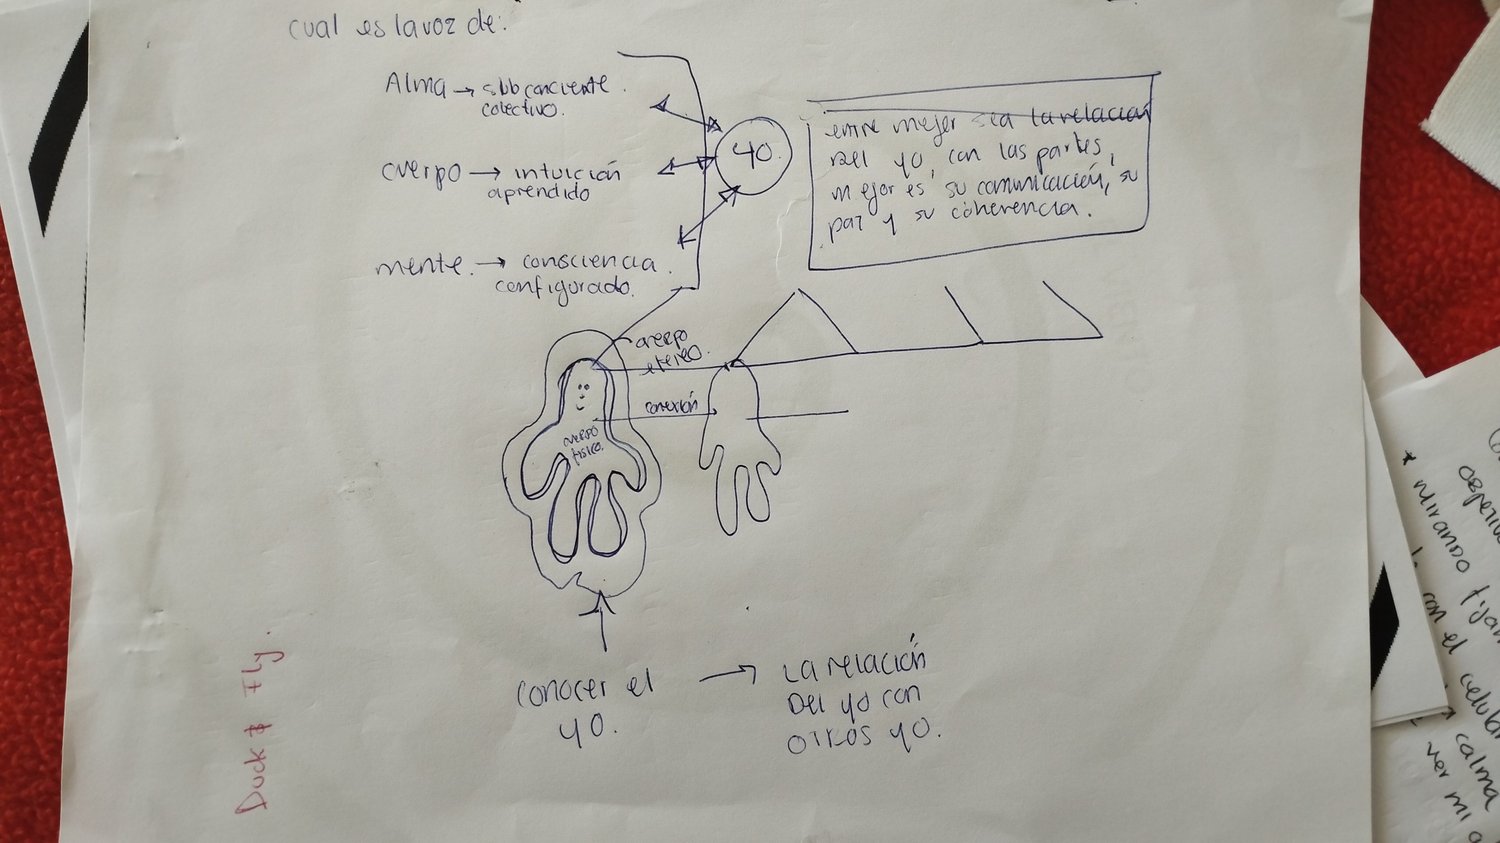 cual es la voz de:
Alma → subconciente
colectivo.
cuerpo → intuición
aprendido
mente. → consciencia
configurado.
yo.
entre mejor sea la relación
del yo, con las partes,
mejor es su comunicación, su
paz y su coherencia.
cuerpo
etereo.
conexión
cuerpo
fisico.
conocer el
yo.
→ La relación
del yo con
otros yo.
Duck & Fly.
* Mirando fijam
con el celular
calma
ver mi